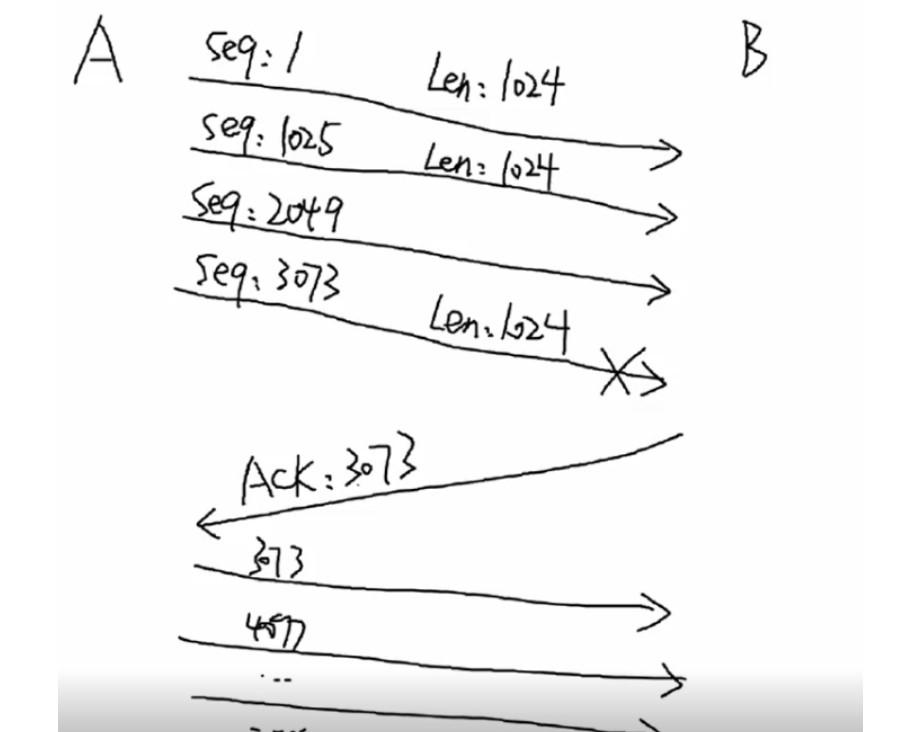 A
B
Seq: 1
Len: 1024
Seq: 1025
Len: 1024
Seq: 2049
Seq: 3073
Len: 1024
Ack: 3073
3073
4097
...